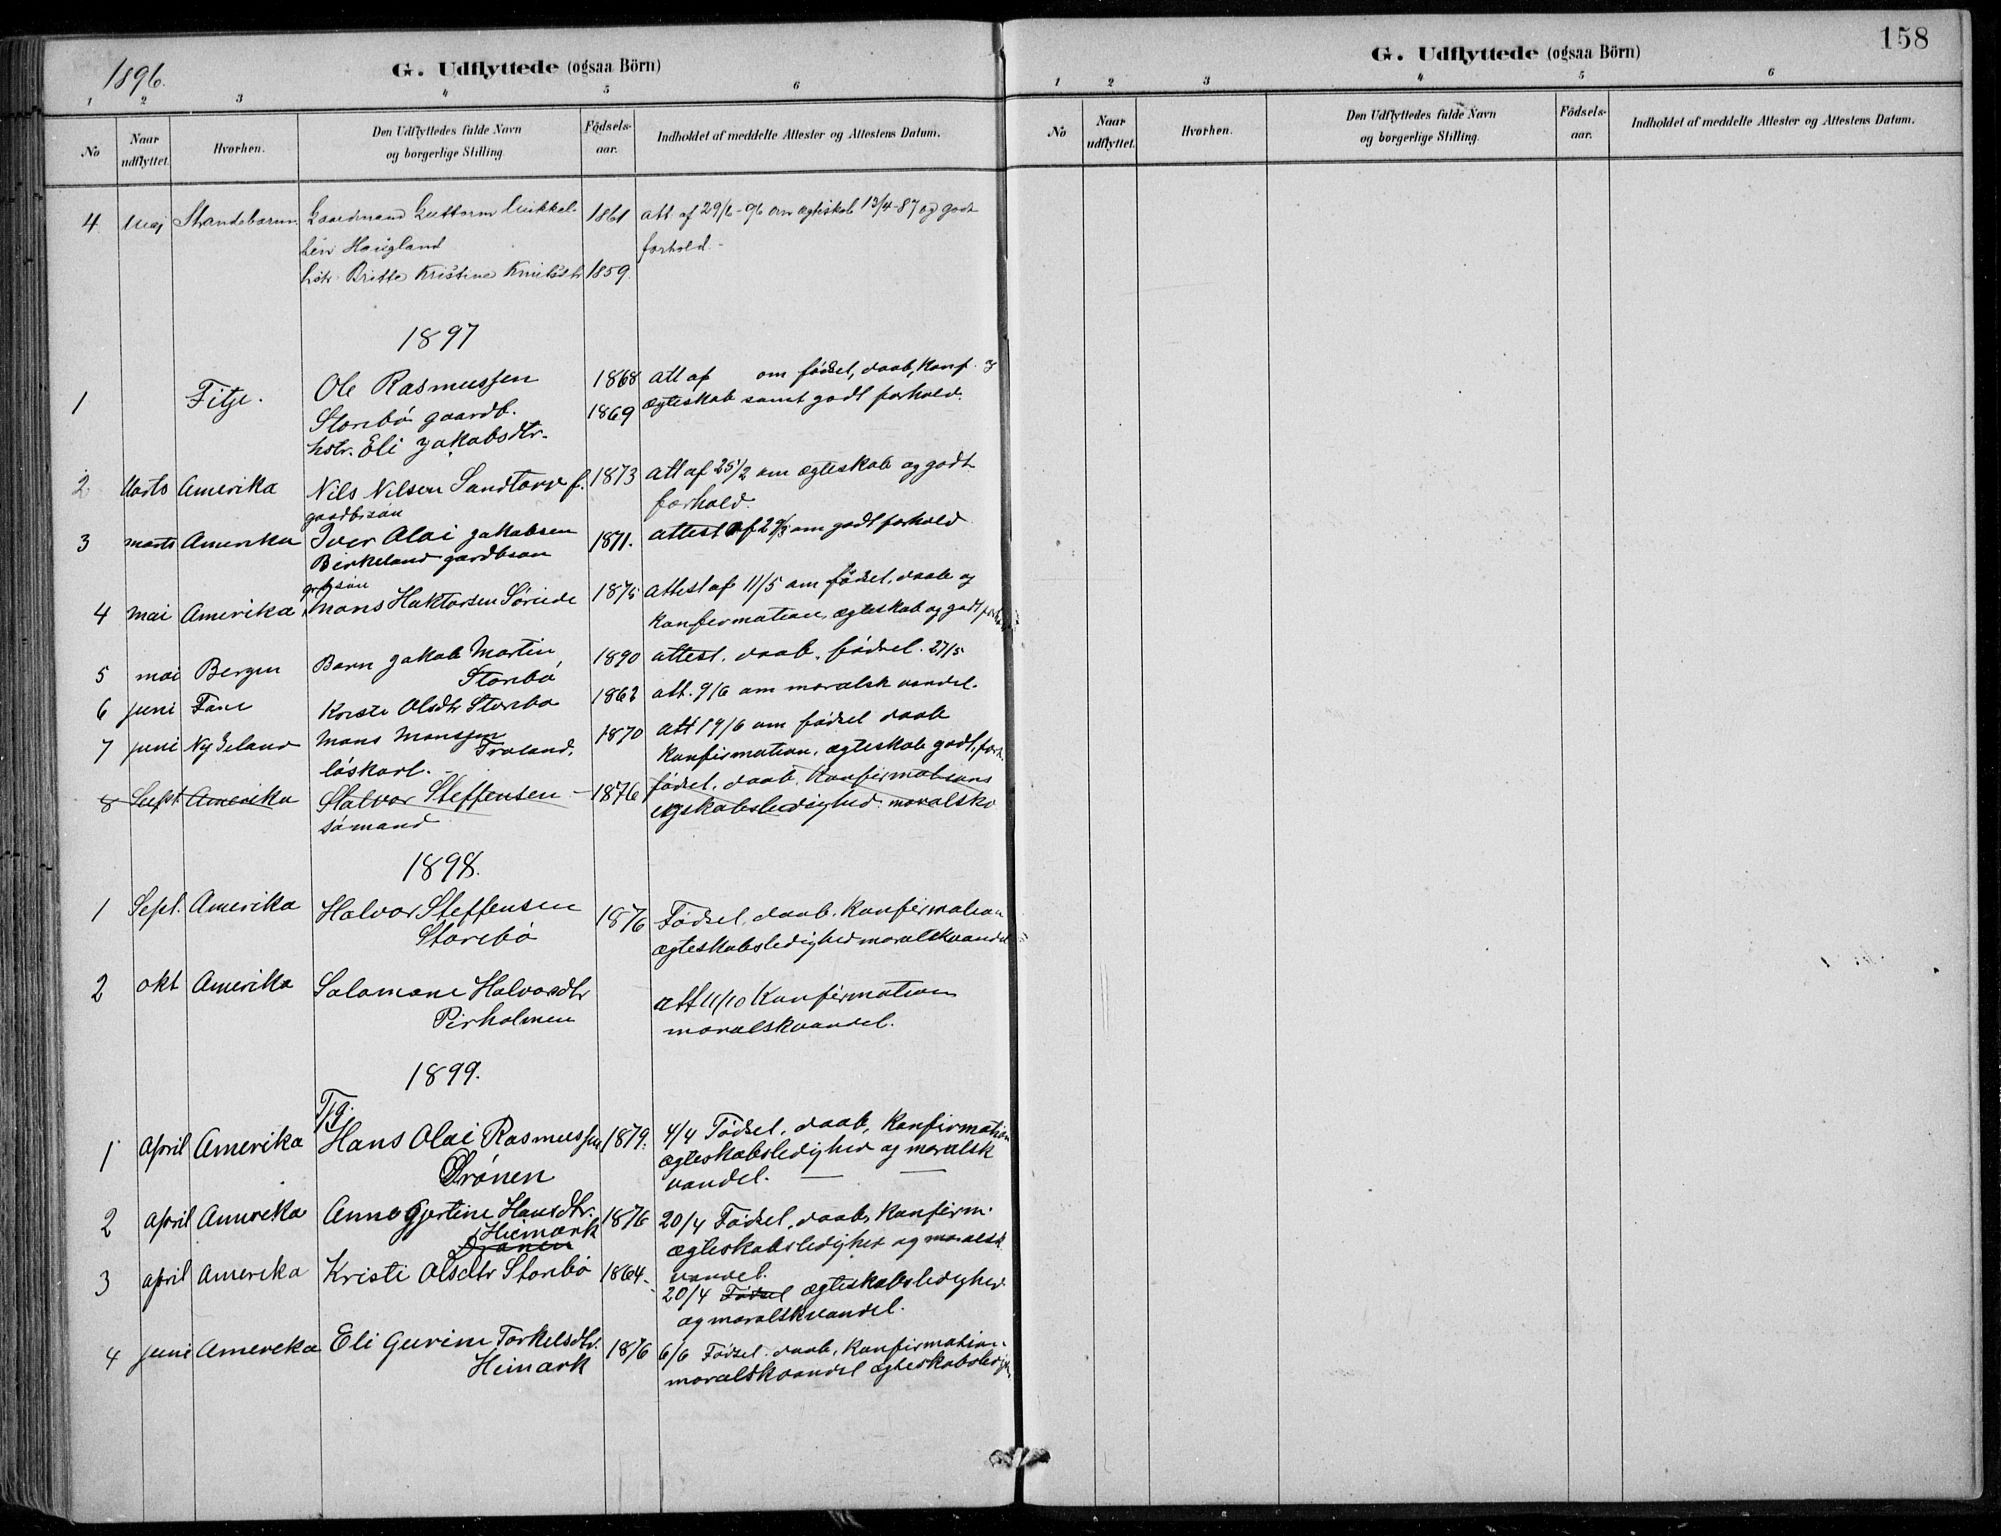 1896.
G. Udflyttede (ogsaa Börn)
1 2 3 4 5 6
No
Naar udflyttet.
Hvorhen.
Den Udflyttedes fulde Navn og borgerlige Stilling.
Fødsels-aar.
Indholdet af meddelte Attester og Attestens Datum.
4. Maj Strandebarm Gaardmand Guttorm Mikkel- 1861 att af 29/6-96 om ægteskab 13/4-87 og godt
sen Haugland forhold.-
hstr. Britte Kristine Knutsdtr 1859.
1897
1 Fitje. Ole Rasmussen 1868 att af om fødsel, daab, Konf. og
Storebø gaardb. 1869 ægteskab samt godt forhold.
hstr. Eli Jakobsdtr.
2 Marts Amerika Nils Nilsen Sandtorv f. 1873 att af 25/2 om ægteskab og godt
gaardbsøn forhold.
3 marts Amerika Iver Olai Jakobsen 1871. attest af 2/3 om godt forhold
Birkeland gardbsøn
grbsøn
4 mai Amerika Mons Haktorsen Søreide 1875 attest af 11/5 om fødsel, daab og
Konfirmation, ægteskab og godt forh
5 mai Bergen Barn Jakob Martin 1890 attest. daab. fødsel. 27/5
Storebø
6 juni Fane Kriste Olsdtr Storebø 1862 att. 9/6 om moralsk vandel.
7 juni Ny Zeland Mons Monssen 1870 att 19/6 om fødsel daab
Troland, Konfirmation, ægteskab godt forh.
løskarl.
8 Sept. Amerika Halvor Steffensen - 1876 fødsel, daab. Konfirmations
sømand egskabsledighed. moralske
1898.
1 Sept. Amerika Halvor Steffensen 1876 Fødsel, daab, Konfirmation
Storebø ægteskabsledighed moralsk vandel
2 okt Amerika Salamone Halvorsdtr att 11/10 Konfirmation
Pirholmen moralsk vandel.
1899.
Tfg.
1 April Amerika Hans Olai Rasmussen 1879. 4/4 Fødsel, daab, Konfirmation
Drönen ægteskabsledighed og moralsk
vandel.
2 april Amerika Anna Gjertine Hansdtr. 1876 20/4 Fødsel, daab, Konfirm.
Heimark ægteskabsledighet og moralsk
Drönen vandel.
3 april Amerika Kristi Olsdtr Storebø 1864. 20/4 Fødsel ægteskabsledighed
og moralsk vandel.
4 juni Amerika Eli Gurine Torkelsdtr. 1876 6/6 Fødsel. daab, Konfirmation.
Heimark moralsk vandel ægteskabsledigh.
158
G. Udflyttede (ogsaa Börn)
1 2 3 4 5 6
No
Naar udflyttet.
Hvorhen.
Den Udflyttedes fulde Navn og borgerlige Stilling.
Fødsels-aar.
Indholdet af meddelte Attester og Attestens Datum.